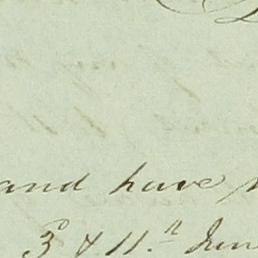 and have
3 & 11th June